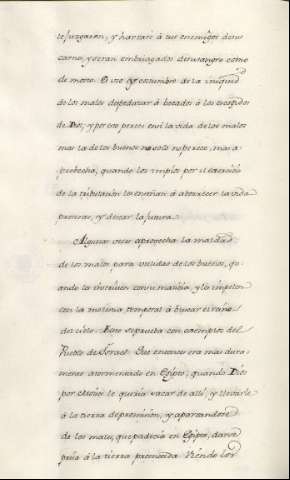 te juzgaron, y hartaré á tus enemigos de sus
carnes, y seran embriagados de su sangre como
de mosto. Es uso y costumbre de la iniquid.
de los malos despedazar á bocados á los escogidos
de Dios; y por esto perece en sí la vida de los malos
mas la de los buenos no solo no perece, mas a
probecha, quando los impios por el exercicio
de la tribulacion los enseñan á aborrecer la vida
presente, y desear la futura.
Algunas veces aprovecha la maldad
de los malos para utilidad de los buenos, qu
ando los instruien con su malicia, y los impelen
con la molestia temporal á buscar el reino
del cielo. Esto se prueba con exemplos del
Pueblo de Israel. Que entonces era mas dura
mente atormentado en Egipto, quando Dios
por Moises le queria sacar de allí, y llevarle
á la tierra de promision, y apartandose
de los males, que padecia en Egipto, darse
prisa á la tierra prometida. Viendo los